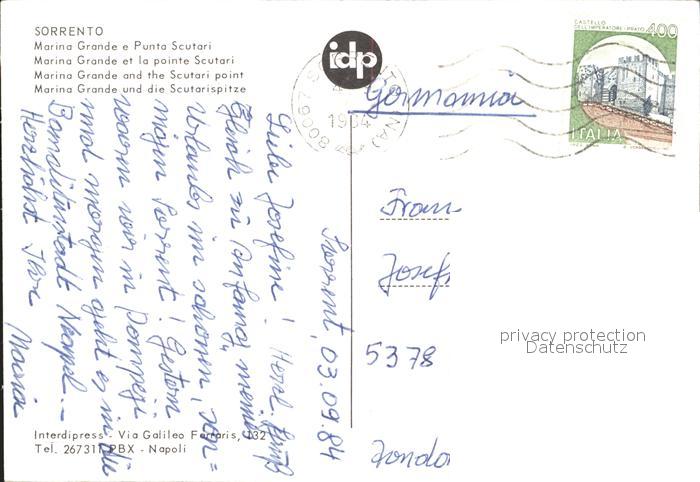 SORRENTO
Marina Grande e Punta Scutari
Marina Grande et la pointe Scutari
Marina Grande and the Scutari point
Marina Grande und die Scutarispitze
idp
CASTELLO
DELL'IMPERATORE - PRATO 400
ITALIA
80067
1984
Germania
Sorrent, 03.09.84
Liebe Josefine! Herzl. Grüße
gleich zu Anfang meines
Urlaubs im schönen, son=
nigen Sorrent! Gestern
waren wir in Pompeji
und morgen geht es in die
Banditenstadt Neapel.-
Herzlichst Ihre
Maria
Frau
Josef
5378
privacy protection
Datenschutz
Interdipress - Via Galileo Ferraris, 132
Tel. 267311 PBX - Napoli